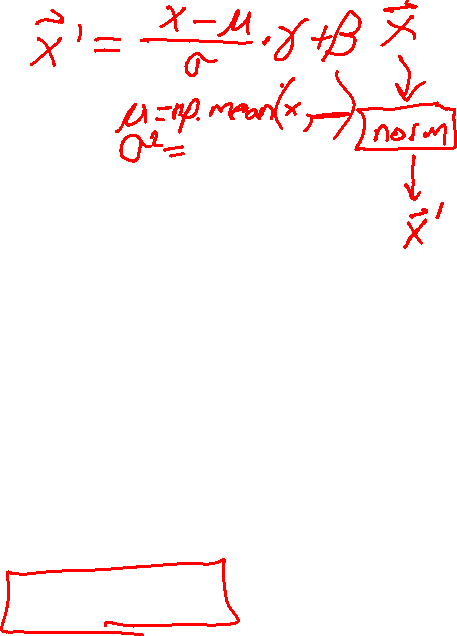 x⃗' = (x - μ)/σ · γ + β
μ = np.mean(x, __)
σ² =
x⃗
norm
x⃗'